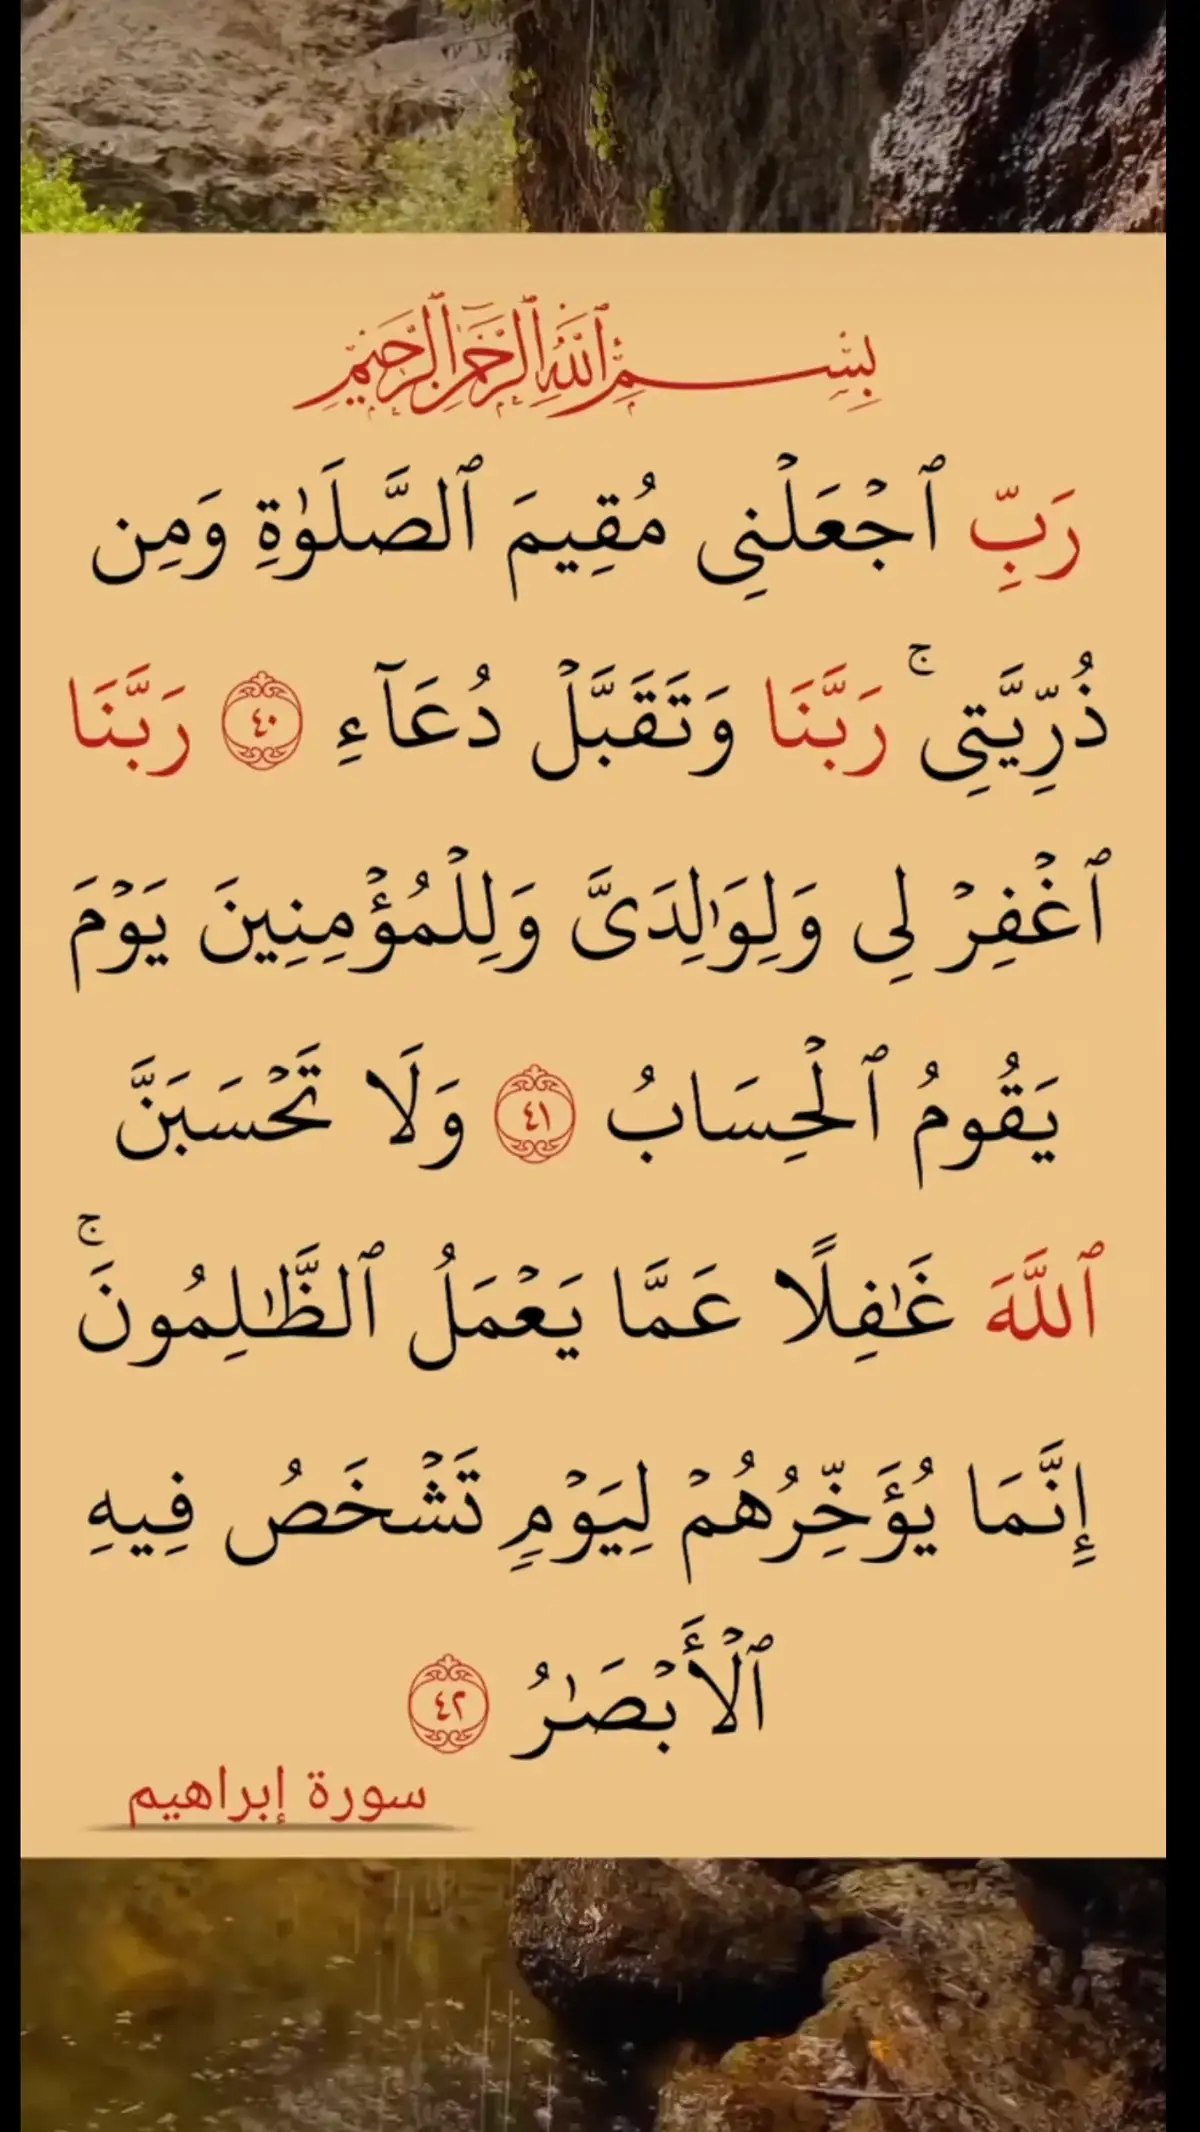 بِسْمِ ٱللَّهِ ٱلرَّحْمَٰنِ ٱلرَّحِيمِ
رَبِّ ٱجْعَلْنِى مُقِيمَ ٱلصَّلَوٰةِ وَمِن
ذُرِّيَّتِى ۚ رَبَّنَا وَتَقَبَّلْ دُعَآءِ ٤٠ رَبَّنَا
ٱغْفِرْ لِى وَلِوَٰلِدَىَّ وَلِلْمُؤْمِنِينَ يَوْمَ
يَقُومُ ٱلْحِسَابُ ٤١ وَلَا تَحْسَبَنَّ
ٱللَّهَ غَٰفِلًا عَمَّا يَعْمَلُ ٱلظَّٰلِمُونَ ۚ
إِنَّمَا يُؤَخِّرُهُمْ لِيَوْمٍ تَشْخَصُ فِيهِ
ٱلْأَبْصَٰرُ ٤٢
سورة إبراهيم